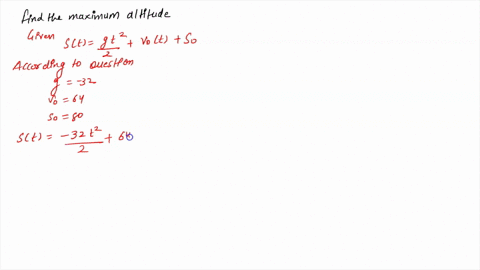 find the maximum altitude
Given S(t) = gt²/2 + v₀(t) + S₀
According to question
g = -32
v₀ = 64
s₀ = 80
S(t) = -32t²/2 + 64